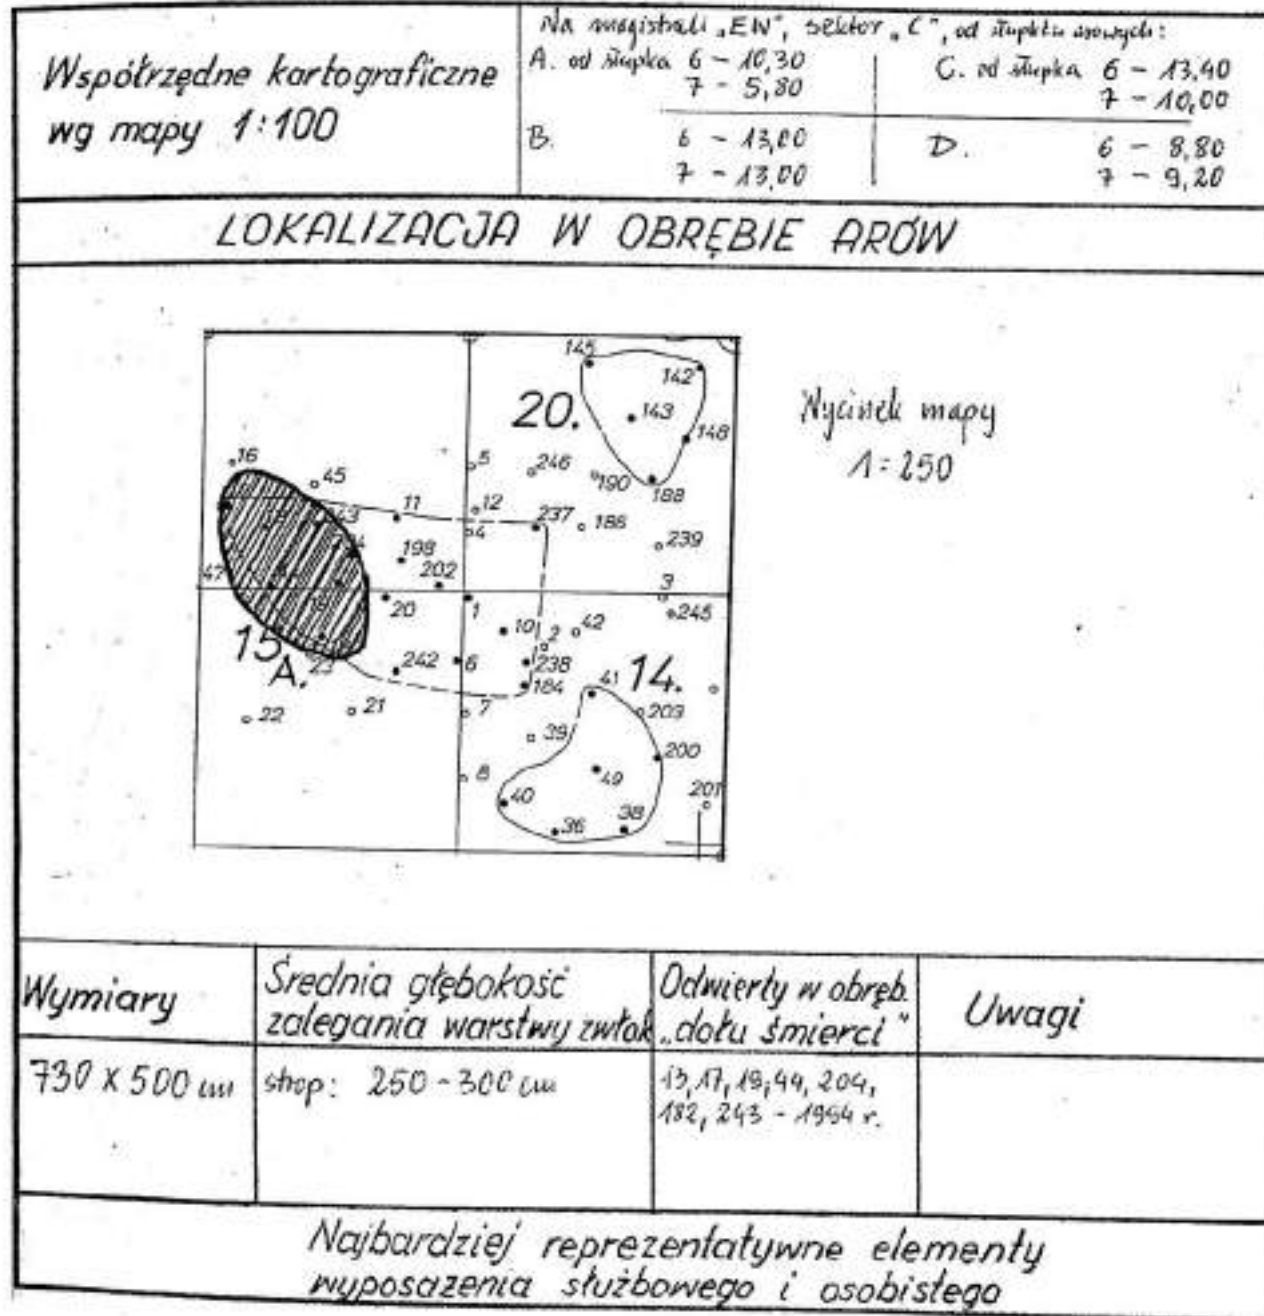 Współrzędne kartograficzne
wg mapy 1:100
Na magistrali „EW", sektor „C", od słupków arowych:
A. od słupka 6 – 10,30
7 – 5,80
B. 6 – 13,00
7 – 13,00
C. od słupka 6 – 13,40
7 – 10,00
D. 6 – 8,80
7 – 9,20
LOKALIZACJA W OBRĘBIE ARÓW
145
142
20.
143
148
16
45
5
246
190
188
43
11
12
4
237
186
239
198
47
202
3
20
1
245
10
42
2
15
A.
23
242
6
238
184
41
14.
22
21
7
203
39
200
8
49
201
40
36
38
Wycinek mapy
1:250
Wymiary
Średnia głębokość
zalegania warstwy zwłok
Odwierty w obręb.
„dołu śmierci"
Uwagi
730 x 500 cm
strop: 250 – 300 cm
13, 17, 19, 44, 204,
182, 243 – 1994 r.
Najbardziej reprezentatywne elementy
wyposażenia służbowego i osobistego